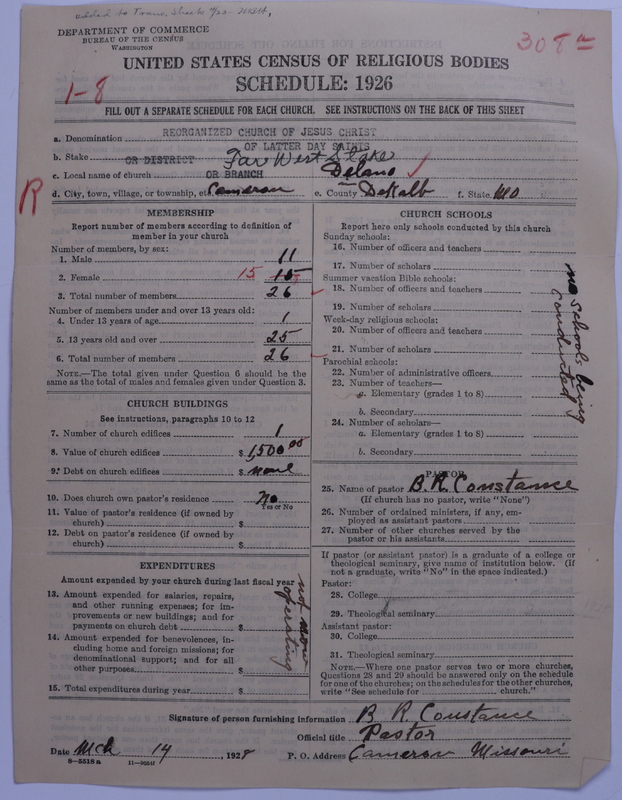 added to Trans. Sheet
DEPARTMENT OF COMMERCE
BUREAU OF THE CENSUS
WASHINGTON
308
UNITED STATES CENSUS OF RELIGIOUS BODIES
SCHEDULE: 1926
1-8
FILL OUT A SEPARATE SCHEDULE FOR EACH CHURCH. SEE INSTRUCTIONS ON THE BACK OF THIS SHEET
a. Denomination REORGANIZED CHURCH OF JESUS CHRIST
OF LATTER DAY SAINTS
b. Stake OR DISTRICT Far West Stake
c. Local name of church OR BRANCH Delano
R
d. City, town, village, or township, etc. Cameron e. County in DeKalb f. State MO
MEMBERSHIP
Report number of members according to definition of
member in your church
Number of members, by sex:
1. Male 11
2. Female 15 15
3. Total number of members 26
Number of members under and over 13 years old:
4. Under 13 years of age 1
5. 13 years old and over 25
6. Total number of members 26
NOTE.—The total given under Question 6 should be the
same as the total of males and females given under Question 3.
CHURCH BUILDINGS
See instructions, paragraphs 10 to 12
7. Number of church edifices 1
8. Value of church edifices $ 1,500 00
9. Debt on church edifices $ none
10. Does church own pastor's residence No
Yes or No
11. Value of pastor's residence (if owned by
church) $
12. Debt on pastor's residence (if owned by
church) $
EXPENDITURES
Amount expended by your church during last fiscal year
13. Amount expended for salaries, repairs,
and other running expenses; for im-
provements or new buildings; and for
payments on church debt $
14. Amount expended for benevolences, in-
cluding home and foreign missions; for
denominational support; and for all
other purposes $
15. Total expenditures during year $
not now
operating
CHURCH SCHOOLS
Report here only schools conducted by this church
Sunday schools:
16. Number of officers and teachers
17. Number of scholars
Summer vacation Bible schools:
18. Number of officers and teachers
19. Number of scholars
Week-day religious schools:
20. Number of officers and teachers
21. Number of scholars
Parochial schools:
22. Number of administrative officers
23. Number of teachers—
a. Elementary (grades 1 to 8)
b. Secondary
24. Number of scholars—
a. Elementary (grades 1 to 8)
b. Secondary
no schools being
conducted
PASTOR
25. Name of pastor B. R. Constance
(If church has no pastor, write "None")
26. Number of ordained ministers, if any, em-
ployed as assistant pastors
27. Number of other churches served by the
pastor or his assistants
If pastor (or assistant pastor) is a graduate of a college or
theological seminary, give name of institution below. (If
not a graduate, write "No" in the space indicated.)
Pastor:
28. College
29. Theological seminary
Assistant pastor:
30. College
31. Theological seminary
NOTE.—Where one pastor serves two or more churches,
Questions 28 and 29 should be answered only on the schedule
for one of the churches; on the schedules for the other churches,
write "See schedule for church."
Signature of person furnishing information B R Constance
Official title Pastor
Date Mch 14, 1928 P. O. Address Cameron Missouri
8-5518 a